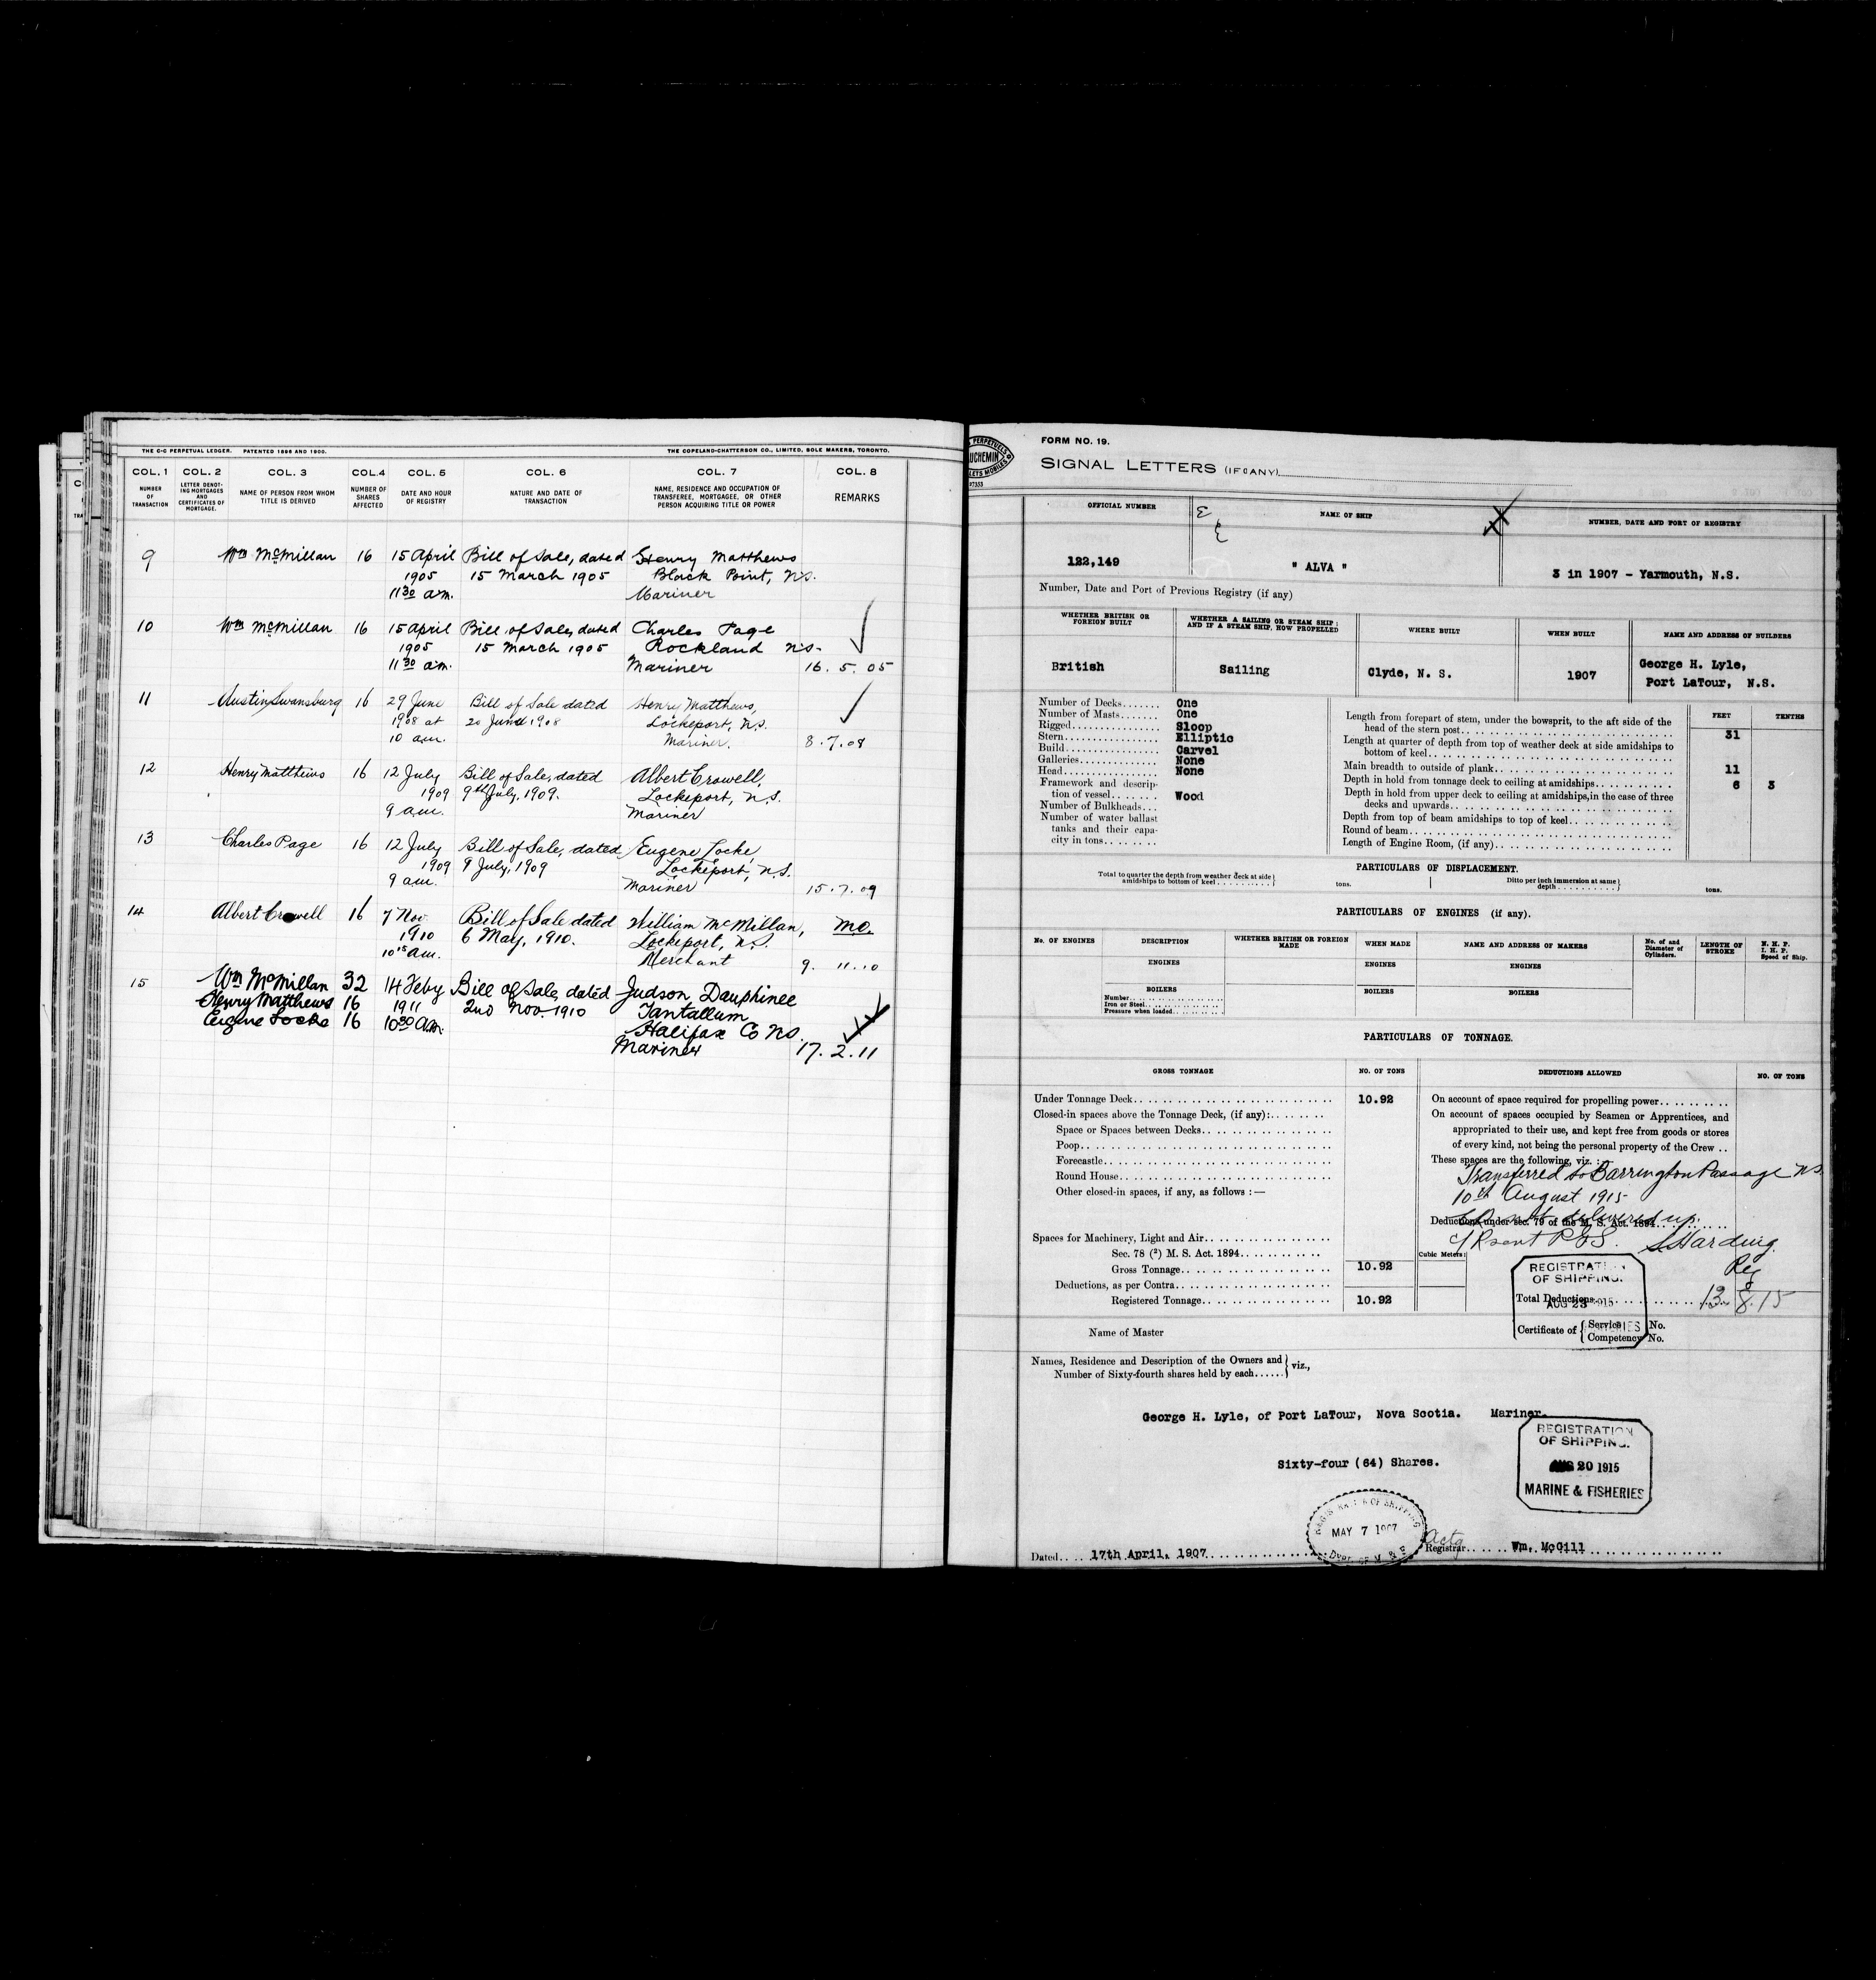 THE C-C PERPETUAL LEDGER. PATENTED 1896 AND 1900. THE COPELAND-CHATTERSON CO., LIMITED, SOLE MAKERS, TORONTO.
COL. 1 COL. 2 COL. 3 COL. 4 COL. 5 COL. 6 COL. 7 COL. 8
NUMBER OF TRANSACTION
LETTER DENOTING MORTGAGES AND CERTIFICATES OF MORTGAGE.
NAME OF PERSON FROM WHOM TITLE IS DERIVED
NUMBER OF SHARES AFFECTED
DATE AND HOUR OF REGISTRY
NATURE AND DATE OF TRANSACTION
NAME, RESIDENCE AND OCCUPATION OF TRANSFEREE, MORTGAGEE, OR OTHER PERSON ACQUIRING TITLE OR POWER
REMARKS
9 Wm McMillan 16 15 April Bill of Sale, dated Henry Matthews
1905 15 March 1905 Black Point, N.S.
11 30 a.m. Mariner
10 Wm McMillan 16 15 April Bill of Sale, dated Charles Page
1905 15 March 1905 Rockland N.S.
11 30 am. Mariner 16. 5. 05
11 Austin Swansburg 16 29 June Bill of Sale dated Henry Matthews,
1908 at 20 June 1908 Lockeport, N.S.
10 a.m. Mariner. 8.7.08
12 Henry Matthews 16 12 July Bill of Sale, dated Albert Crowell,
1909 9th July, 1909. Lockeport, N.S.
9 a.m. Mariner
13 Charles Page 16 12 July Bill of Sale, dated Eugene Locke,
1909 9 July, 1909 Lockeport, N.S.
9 a.m. Mariner 15.7.09
14 Albert Crowell 16 7 Nov. Bill of Sale dated William McMillan, M.O.
1910 6 May, 1910. Lockeport, N.S.
10 15 a.m. Merchant 9. 11.10
15 Wm McMillan 32 14 Feby Bill of Sale, dated Judson Dauphinee
Henry Matthews 16 1911 2nd Nov. 1910 Tantallum
Eugene Locke 16 10 30 a.m. Halifax Co N.S.
Mariner 17. 2. 11
FORM NO. 19.
SIGNAL LETTERS (IF ANY)
OFFICIAL NUMBER NAME OF SHIP NUMBER, DATE AND PORT OF REGISTRY
122,149 " ALVA " 3 in 1907 - Yarmouth, N.S.
Number, Date and Port of Previous Registry (if any)
WHETHER BRITISH OR FOREIGN BUILT
WHETHER A SAILING OR STEAM SHIP; AND IF A STEAM SHIP, HOW PROPELLED
WHERE BUILT
WHEN BUILT
NAME AND ADDRESS OF BUILDERS
British Sailing Clyde, N. S. 1907 George H. Lyle,
Port LaTour, N.S.
Number of Decks...... One
Number of Masts...... One
Rigged...... Sloop
Stern...... Elliptic
Build...... Carvel
Galleries...... None
Head...... None
Framework and description of vessel...... Wood
Number of Bulkheads...
Number of water ballast
tanks and their capacity in tons......
FEET TENTHS
Length from forepart of stem, under the bowsprit, to the aft side of the
head of the stern post...... 31
Length at quarter of depth from top of weather deck at side amidships to
bottom of keel......
Main breadth to outside of plank...... 11
Depth in hold from tonnage deck to ceiling at amidships...... 6 3
Depth in hold from upper deck to ceiling at amidships, in the case of three
decks and upwards......
Depth from top of beam amidships to top of keel......
Round of beam......
Length of Engine Room, (if any)......
PARTICULARS OF DISPLACEMENT.
Total to quarter the depth from weather deck at side amidships to bottom of keel...... tons. Ditto per inch immersion at same depth...... tons.
PARTICULARS OF ENGINES (if any).
No. OF ENGINES
DESCRIPTION
WHETHER BRITISH OR FOREIGN MADE
WHEN MADE
NAME AND ADDRESS OF MAKERS
No. of and Diameter of Cylinders.
LENGTH OF STROKE
N. H. P.
I. H. P.
Speed of Ship.
ENGINES ENGINES ENGINES
BOILERS BOILERS BOILERS
Number......
Iron or Steel......
Pressure when loaded......
PARTICULARS OF TONNAGE.
GROSS TONNAGE NO. OF TONS DEDUCTIONS ALLOWED NO. OF TONS
Under Tonnage Deck...... 10.92
Closed-in spaces above the Tonnage Deck, (if any):......
Space or Spaces between Decks......
Poop......
Forecastle......
Round House......
Other closed-in spaces, if any, as follows :—
Spaces for Machinery, Light and Air......
Sec. 78 (2) M. S. Act. 1894......
Gross Tonnage...... 10.92
Deductions, as per Contra......
Registered Tonnage...... 10.92
On account of space required for propelling power......
On account of spaces occupied by Seamen or Apprentices, and
appropriated to their use, and kept free from goods or stores
of every kind, not being the personal property of the Crew ..
These spaces are the following, viz. :
Transferred to Barrington Passage N.S.
10th August 1915
not delivered up.
Deductions under sec. 79 of the M. S. Act. 1894......
S Harding
Reg
Cubic Meters:
REGISTRATION
OF SHIPPING.
AUG 23 1915
Total Deductions...... 13. 8.15
Certificate of { Service No.
Competency No.
Name of Master
Names, Residence and Description of the Owners and
Number of Sixty-fourth shares held by each...... } viz.,
George H. Lyle, of Port LaTour, Nova Scotia. Mariner.
Sixty-four (64) Shares.
REGISTRATION
OF SHIPPING.
AUG 20 1915
MARINE & FISHERIES
REGISTRATION OF SHIPPING
MAY 7 1907
DEPT. OF M. & F.
Dated.... 17th April, 1907...... Actg Registrar...... Wm. McGill